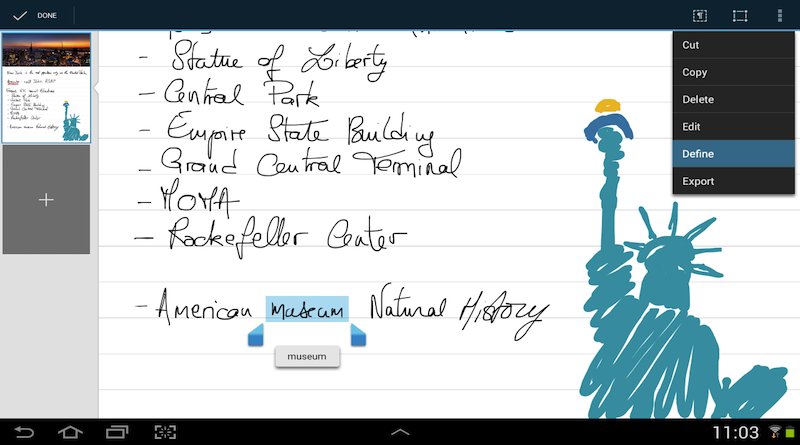 DONE
Cut
Copy
Delete
Edit
Define
Export
- Statue of Liberty
- Central Park
- Empire State Building
- Grand Central Terminal
- MOMA
- Rockefeller Center
- American museum Natural History
museum
11:03